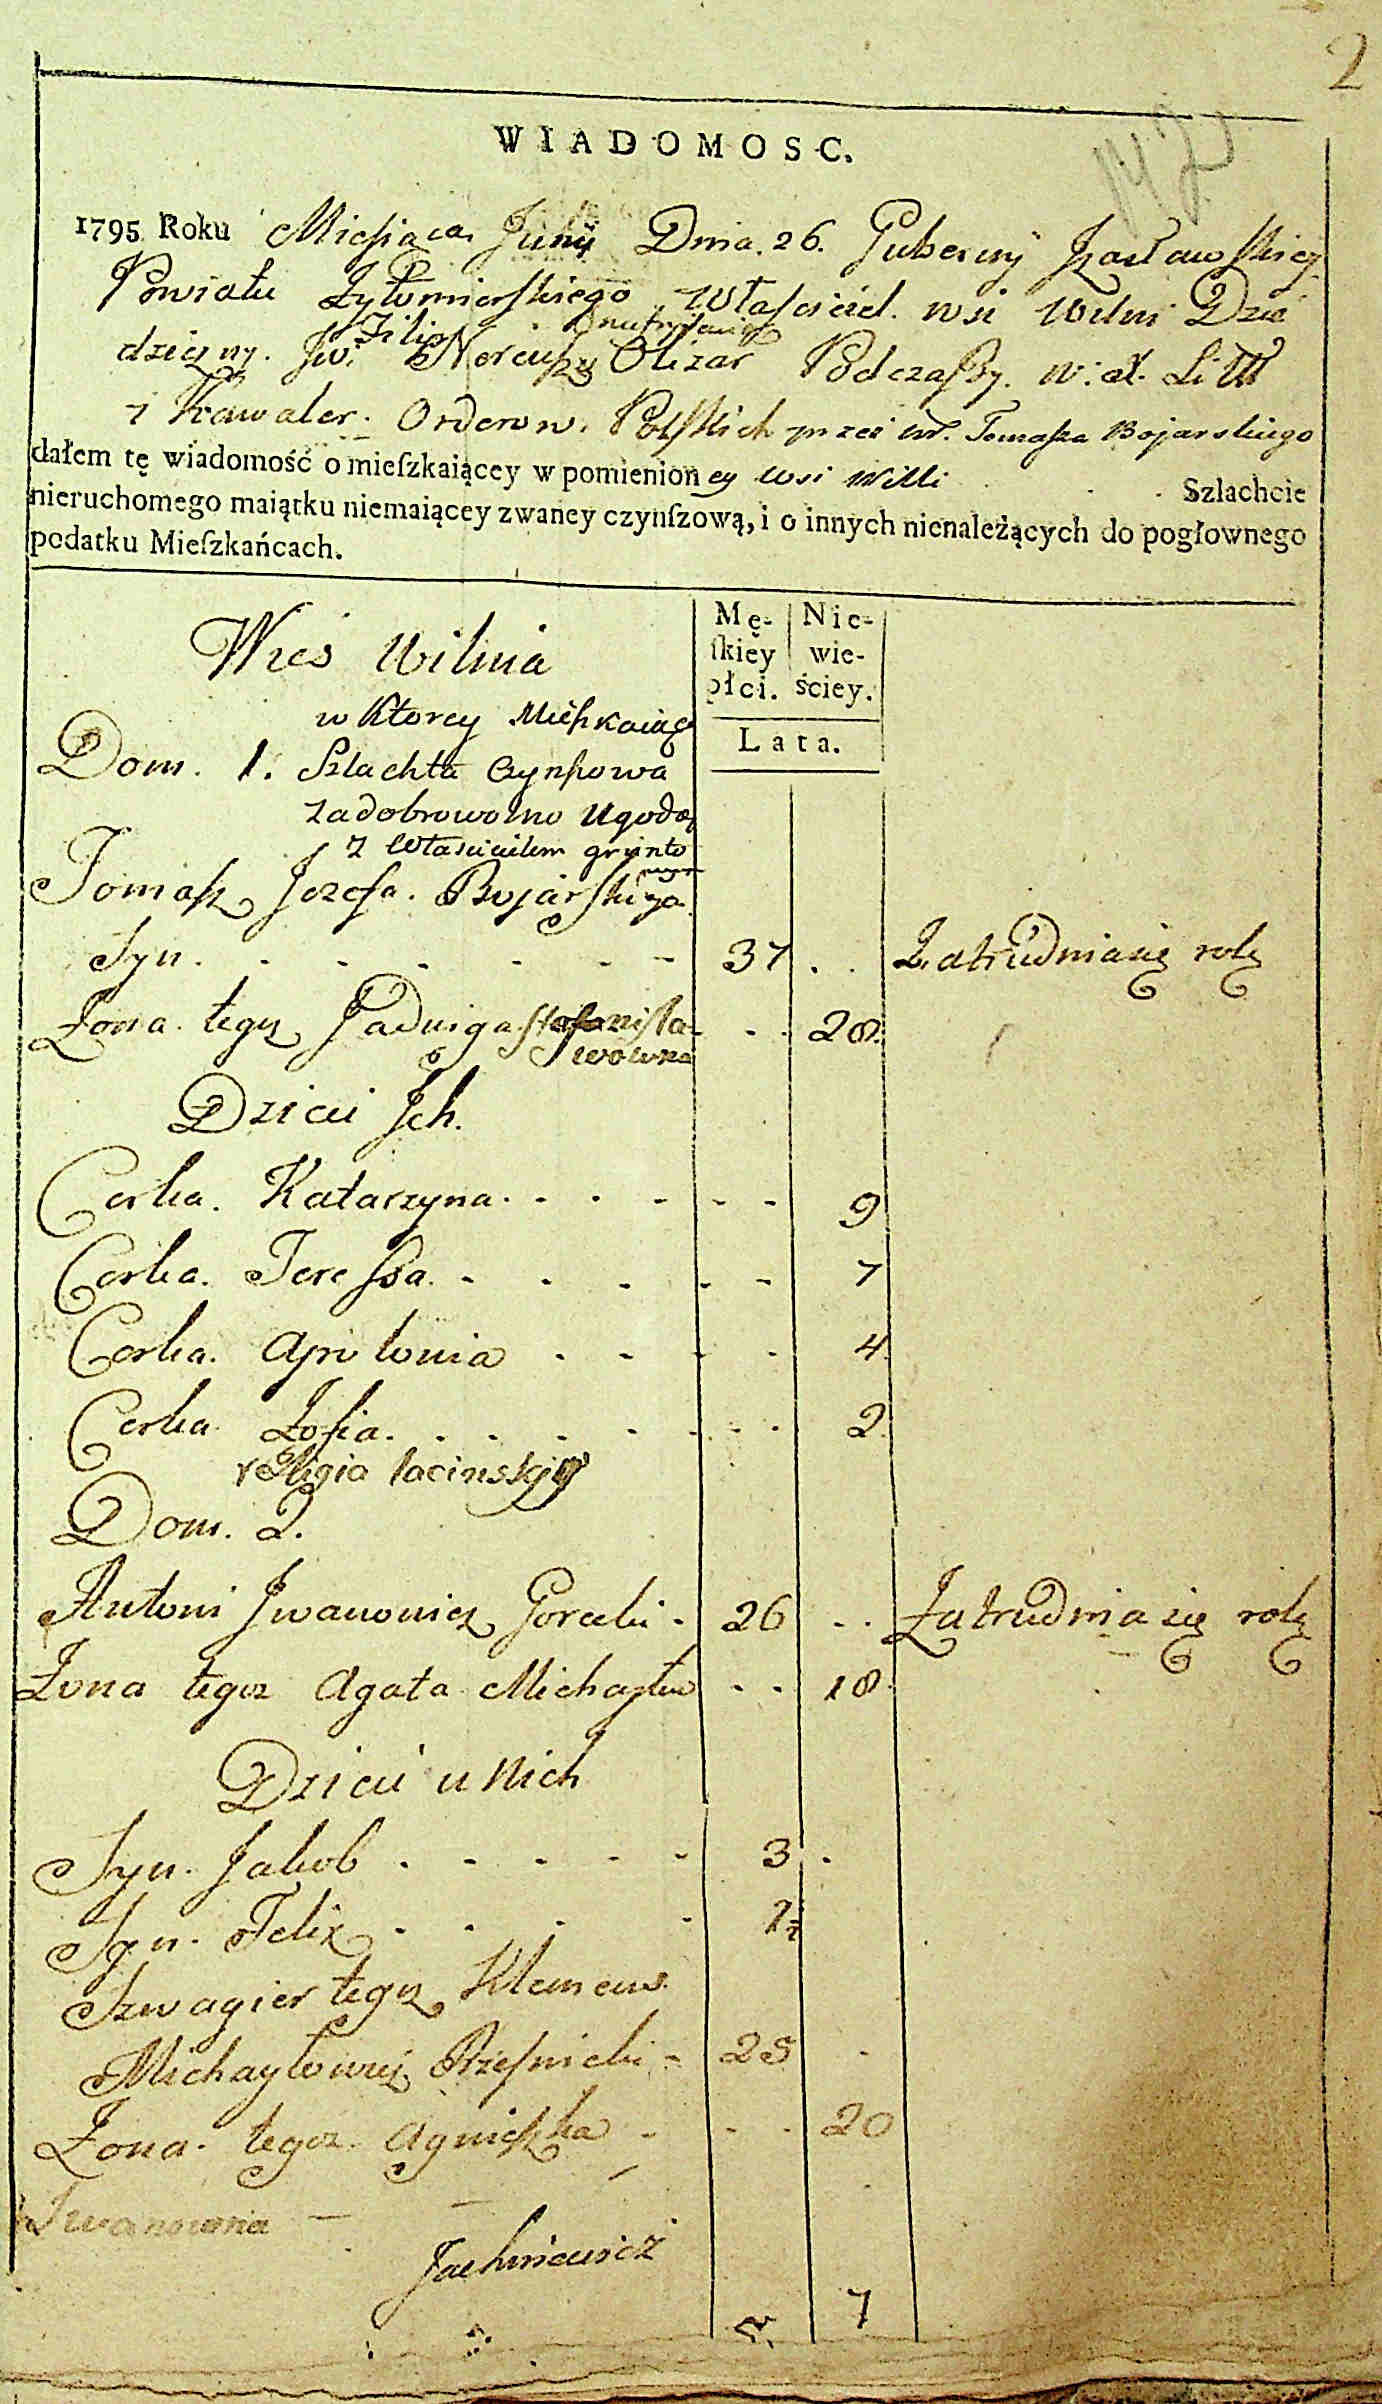 2
WIADOMOSC.
1795 Roku Miesiąca Junij Dnia. 26. Guberny Jzasławskiey
Powiatu Zytomierskiego Własciciel. wsi Wilni Dzie
Filip Onufry
dziczny. Jw. Olizar Podczaszy. W. X. Litt
i Kawaler. Orderow. Polskich przez Tomasza Bojarskiego
dałem tę wiadomość o mieſzkaiącey w pomienion ey wsi Wilni Szlachcie
nieruchomego maiątku niemaiącey zwaney czynſzową, i o innych nienależących do pogłownego
podatku Mieſzkańcach.
Wies Wilnia
Mę- Nie-
ſkiey wie-
płci. ściey.
w Ktorey Mieszkaiąca
Lata.
Dom. 1. Szlachta Czynszowa
za dobrowolno Ugodą
z Własicielem grunto
Tomasz Jozefa. Bojarskiego
Syn. 37 Zatrudnia się rolą
Zona tegoz Jadwiga Stefanisła- 28.
wowna
Dzieci Jch.
Corka. Katarzyna. 9
Corka. Teressa. 7
Corka. Apolonia 4
Corka Zofia. 2
religia lacinskiy
Dom. 2.
Antoni Jwanowicz Gorecki 26 Zatrudnia się rolą
Zona tegoz Agata Michayłow 18
Dzieci u Nich
Syn. Jakob 3
Syn. Felix 1½
Szwagier tegoz Klemens
Michaylowicz Rzesnicki 25
Zona tegoz Agnieszka 20
Jwanowna
Jachniewicz
7